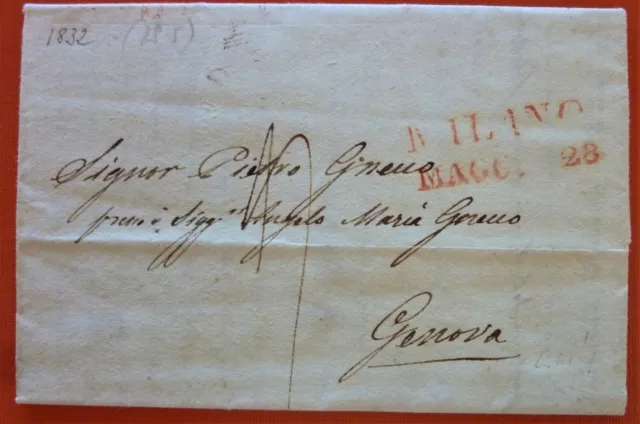 1832 (28 5)
MILANO
MAGG. 28
Signor Pietro Gnecco
Sigg.i Angelo Maria Gnecco
Genova